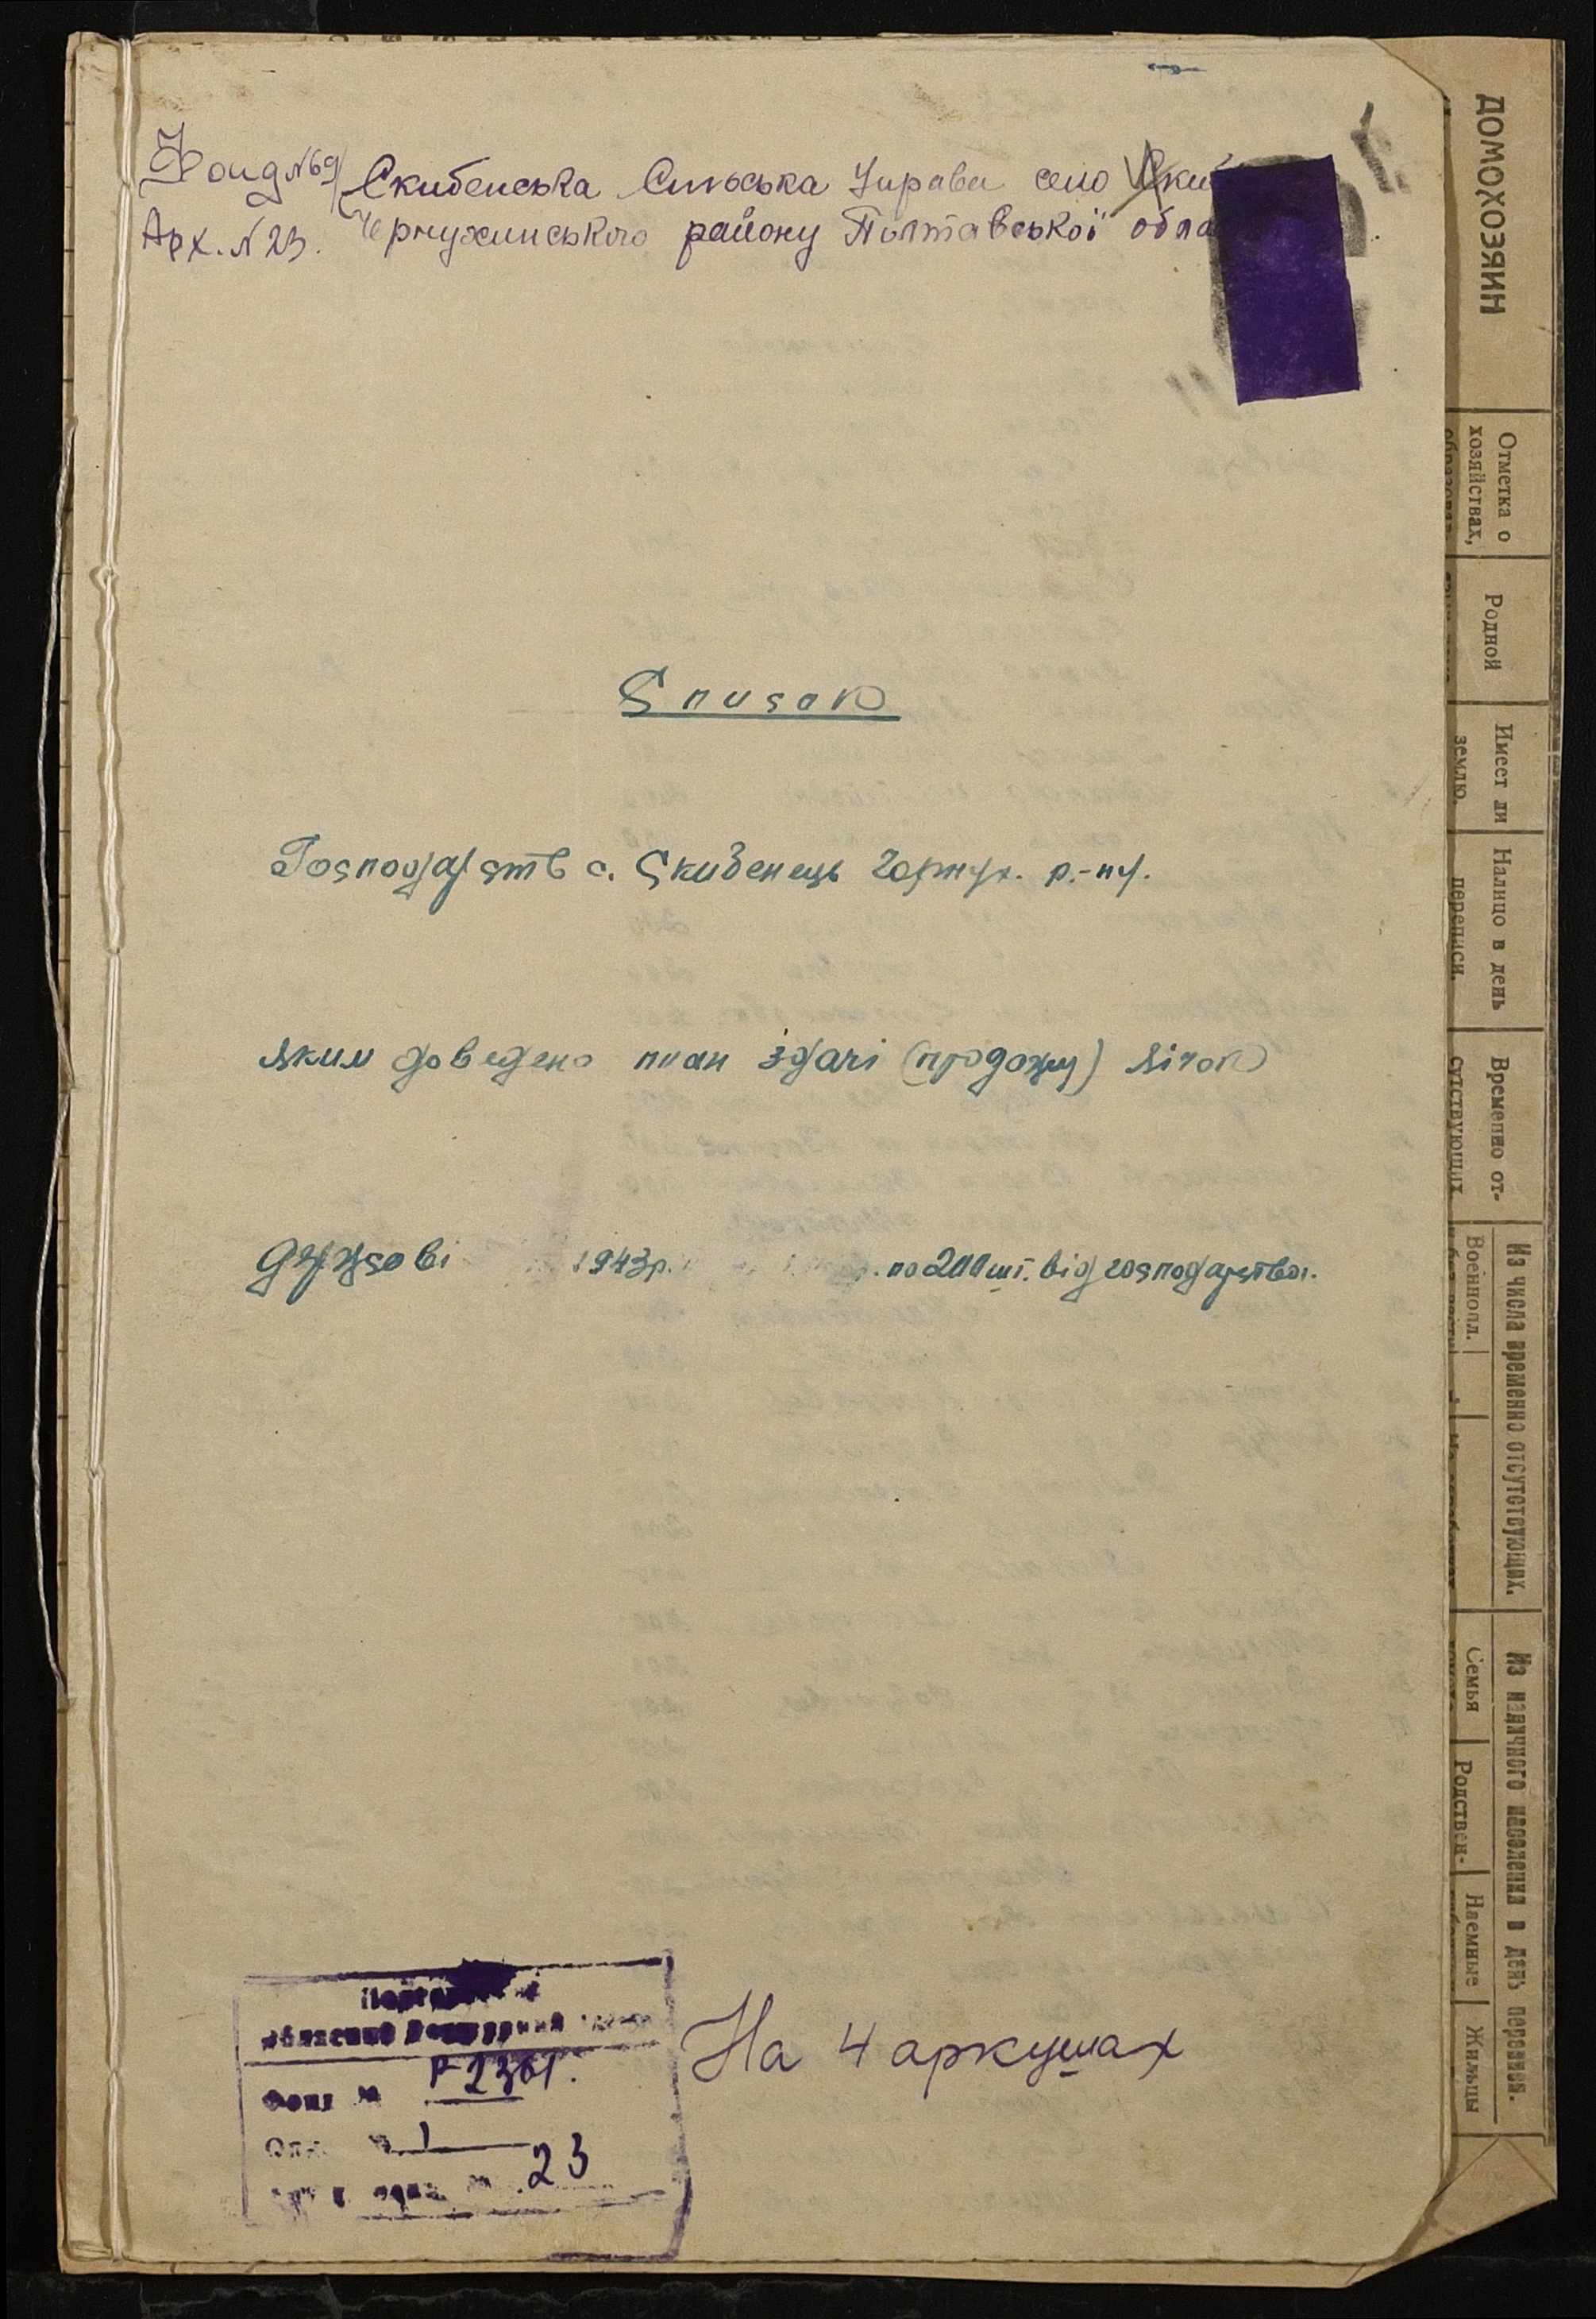 Фонд №69 Скибенська Сильська Управа село
Арх. №23. Чорнухинського району Полтавської обла
Список
Господарств с. Скибенець Чорнух. р-ну.
яким доведено план здачі (продажу) яічок
друзові 1943р. по 200 шт. від господарства.
На 4 аркушах
Р-2361.
Фонд №
1
23
ДОМОХОЗЯИН
Отметка о
хозяйствах,
Родной
Имеет ли
землю.
Налицо в день
переписи.
Временно от-
сутствующих
Из числа временно отсутствующих.
Военнопл.
Из наличного населения в день переписи.
Семья
Родствен-
Наемные
Жильцы